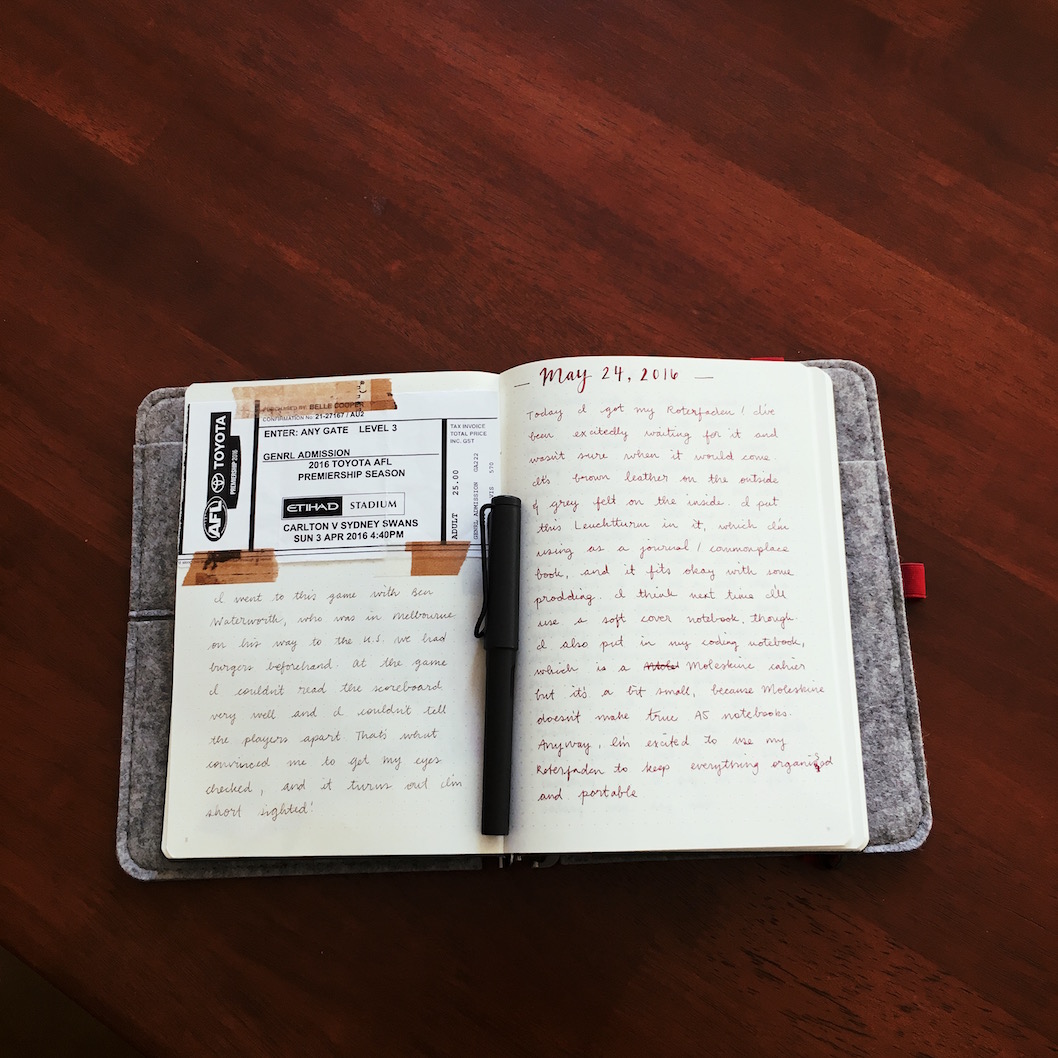 PURCHASED BY: BELLE COOPER
CONFIRMATION No: 21-27167 / AU2
TOYOTA
PREMIERSHIP 2016
AFL
ENTER: ANY GATE LEVEL 3
GENRL ADMISSION
2016 TOYOTA AFL
PREMIERSHIP SEASON
ETIHAD STADIUM
CARLTON V SYDNEY SWANS
SUN 3 APR 2016 4:40PM
TAX INVOICE
TOTAL PRICE
INC. GST
ADULT 25.00
GENRL ADMISSION GA222
570
I went to this game with Ben
Waterworth, who was in Melbourne
on his way to the U.S. We had
burgers beforehand. At the game
I couldn't read the scoreboard
very well and I couldn't tell
the players apart. That's what
convinced me to get my eyes
checked, and it turns out I'm
short sighted!
— May 24, 2016 —
Today I got my Roterfaden! I've
been excitedly waiting for it and
wasn't sure when it would come.
It's brown leather on the outside
& grey felt on the inside. I put
this Leuchtturm in it, which I'm
using as a journal / commonplace
book, and it fits okay with some
prodding. I think next time I'll
use a soft cover notebook, though.
I also put in my coding notebook,
which is a Moleskine cahier
but it's a bit small, because Moleskine
doesn't make true A5 notebooks.
Anyway, I'm excited to use my
Roterfaden to keep everything organised
and portable